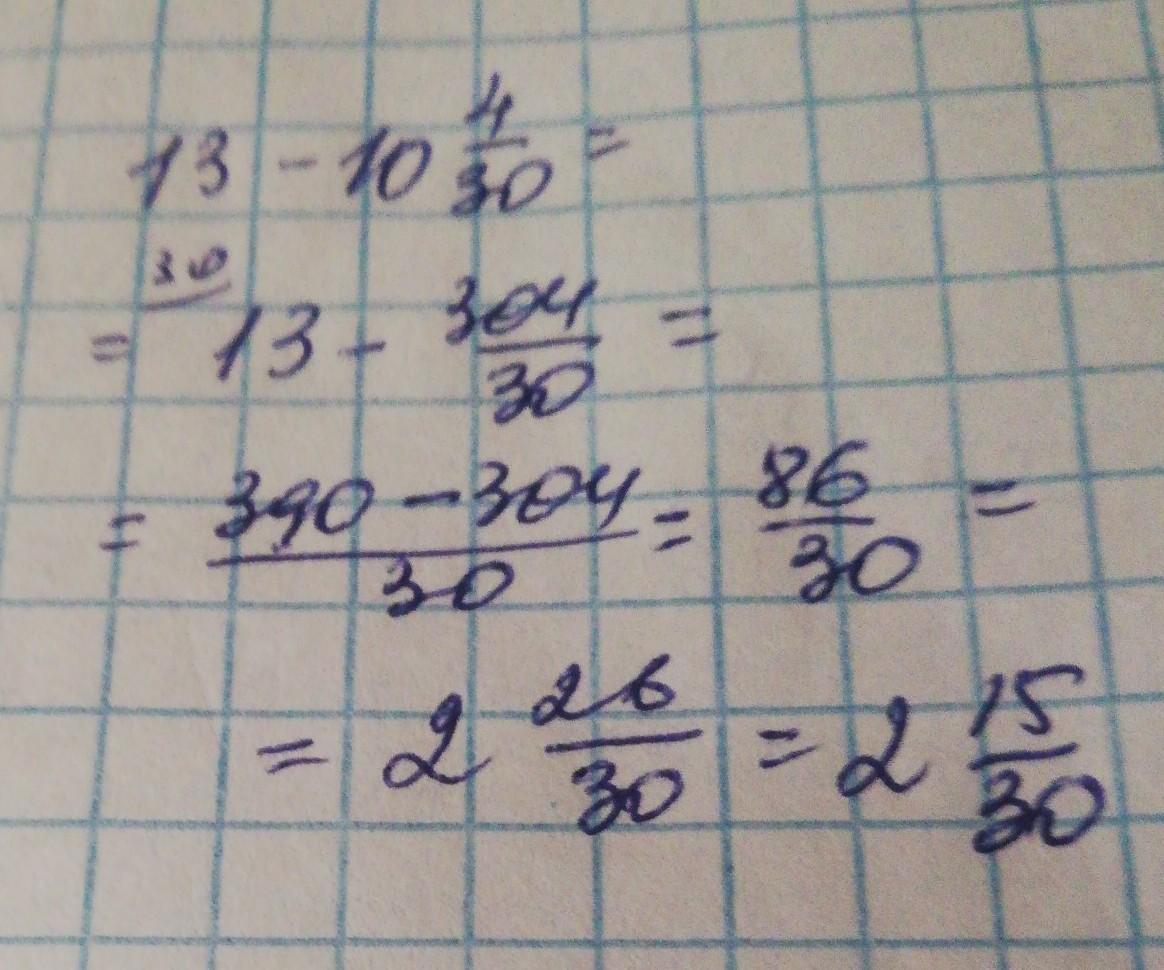 13 - 10 4/30 =
= 30 13 - 304/30 =
= 390 - 304/30 = 86/30 =
= 2 26/30 = 2 15/30